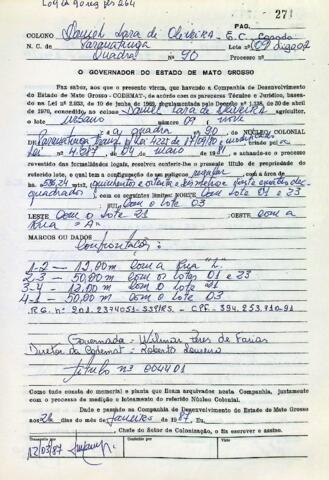 PAG. 271
COLONO Daniel Lara de Oliveira E.C. Casado
N. C. de Paranatinga Lote nº 09 
Quadra 90 Processo nº
O GOVERNADOR DO ESTADO DE MATO GROSSO
Faz saber, aos que o presente virem, que havendo a Companhia de Desenvolvimento
do Estado de Mato Grosso - CODEMAT-, de acôrdo com os pareceres Técnico e Jurídico, basea-
dos na Lei nº 2.933, de 10 de junho de 1969, regulamentada pelo Decreto nº 1.138, de 30 de abril
de 1970, concedido, ao colono Daniel Lara de Oliveira agricultor,
o lote urbano número 09 (nove
da quadra nº 90, do NÚCLEO COLONIAL
Paranatinga Lei 4225 17/09/80
Lei 4.347 04 de maio 81, e achando-se o processo
revestido das formalidades legais, resolveu conferir-lhe o presente título de propriedade do
referido lote, o qual tem a configuração de um polígono regular, com a área de
ha. quinhentos e oitenta e seis metros
quadrados) com os seguintes limites: NORTE Com o Lote 01 e 23
SUL Com o Lote 03
LESTE Com o Lote 21 OESTE Com a
Rua "A"
MARCOS OU DADOS
Confrontações:
1-2 — 12,00 m com a rua
2-3 — 50,00 m com os lotes 01 e 23
3-4 — 12,00 m com o lote 21
4-1 — 50,00 m com o lote 03
R.G. nº 201.2374051-SSP/RS - CPF. 394.253.710-91
Governador - Wilmar Peres de Farias
Diretor da Codemat - Roberto Loureiro
Título nº 004401
Como tudo consta do memorial e planta que ficam arquivados nesta Companhia, juntamente
com o processo de medição e loteamento do referido Núcleo Colonial.
Dado e passado na Companhia de Desenvolvimento do Estado de Mato Grosso
aos 26 dias do mês de Janeiro de 1987. Eu,
Chefe do Setor de Colonização, o fiz escrever e assino.
12/03/87
CONFERIDO POR
VISTO